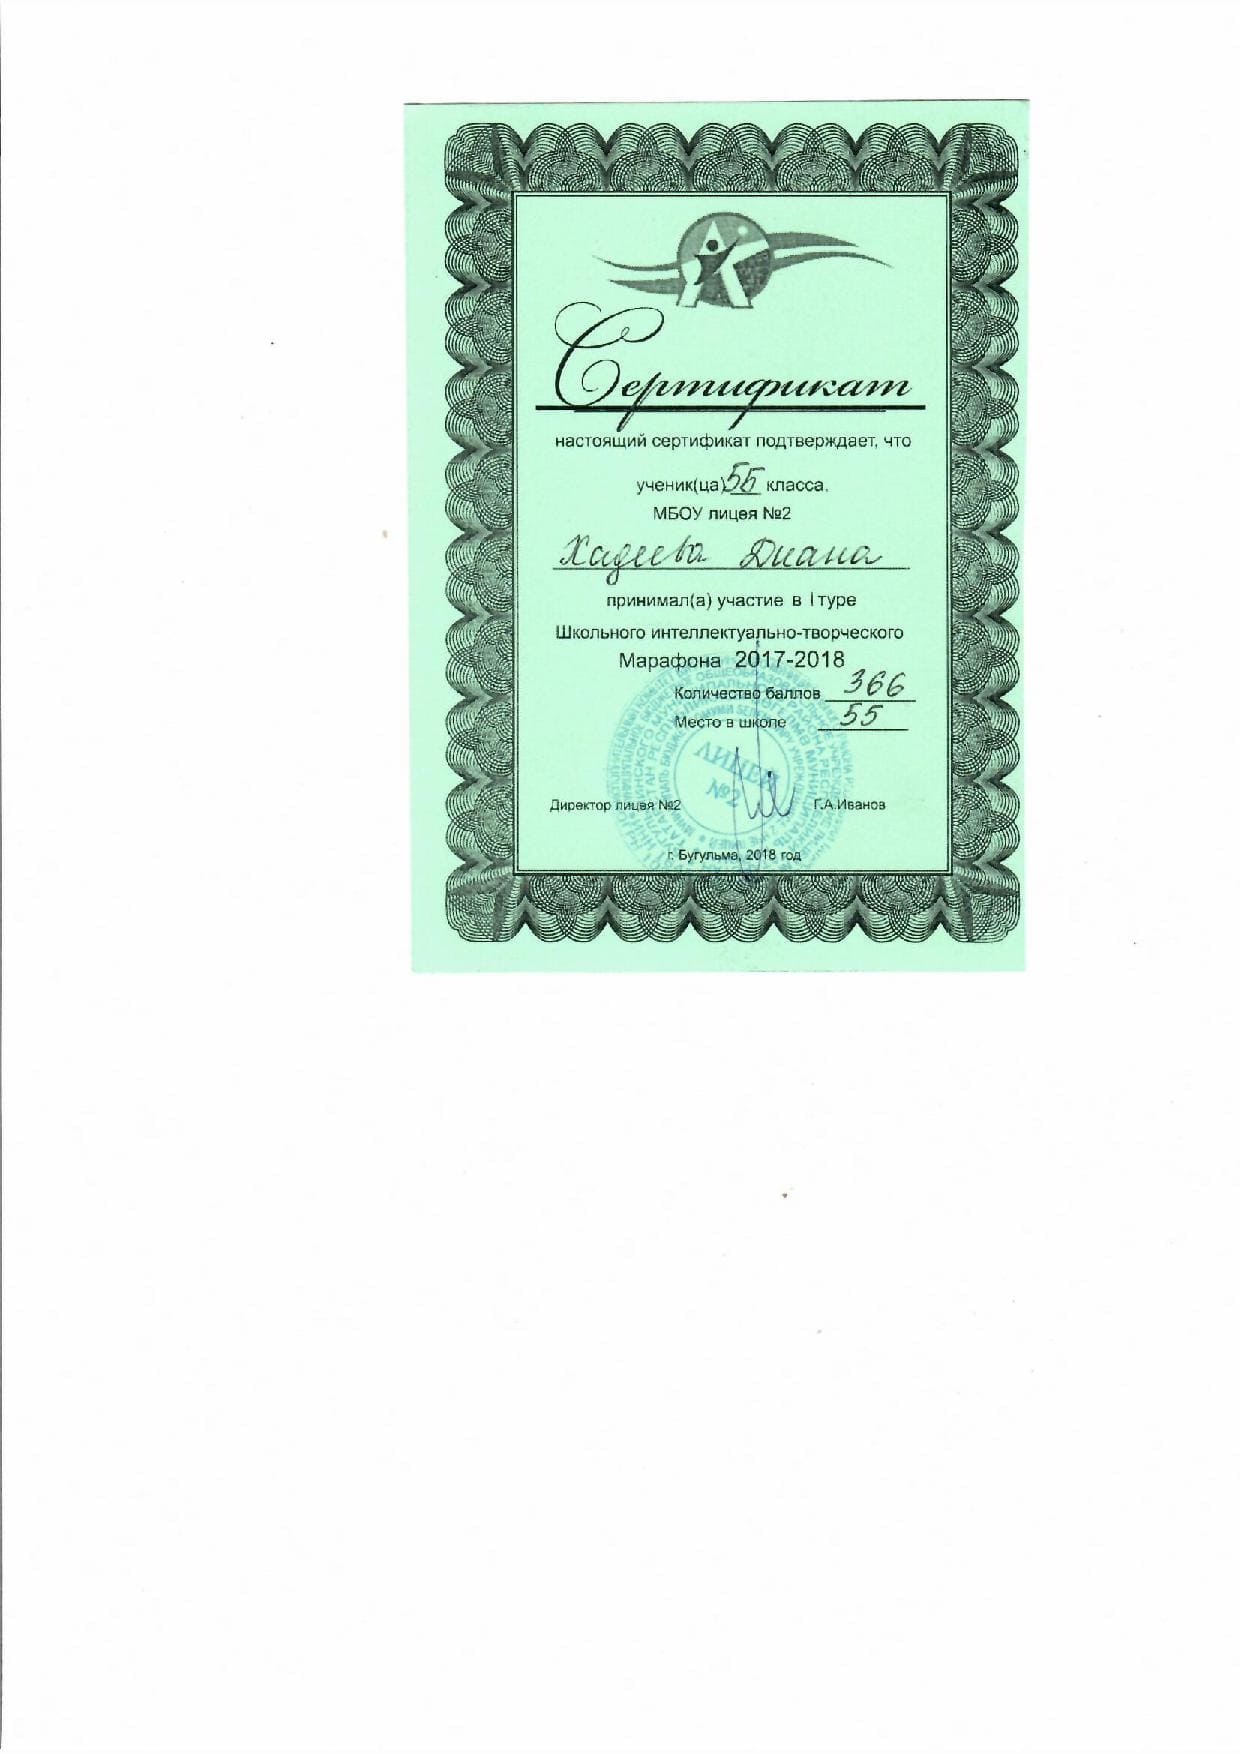 Сертификат
настоящий сертификат подтверждает, что
ученик(ца) 5Б класса,
МБОУ лицея №2
Хадеева Диана
принимал(а) участие в I туре
Школьного интеллектуально-творческого
Марафона 2017-2018
Количество баллов 366
Место в школе 55
ЛИЦЕЙ
№2
Директор лицея №2 Г.А.Иванов
г. Бугульма, 2018 год